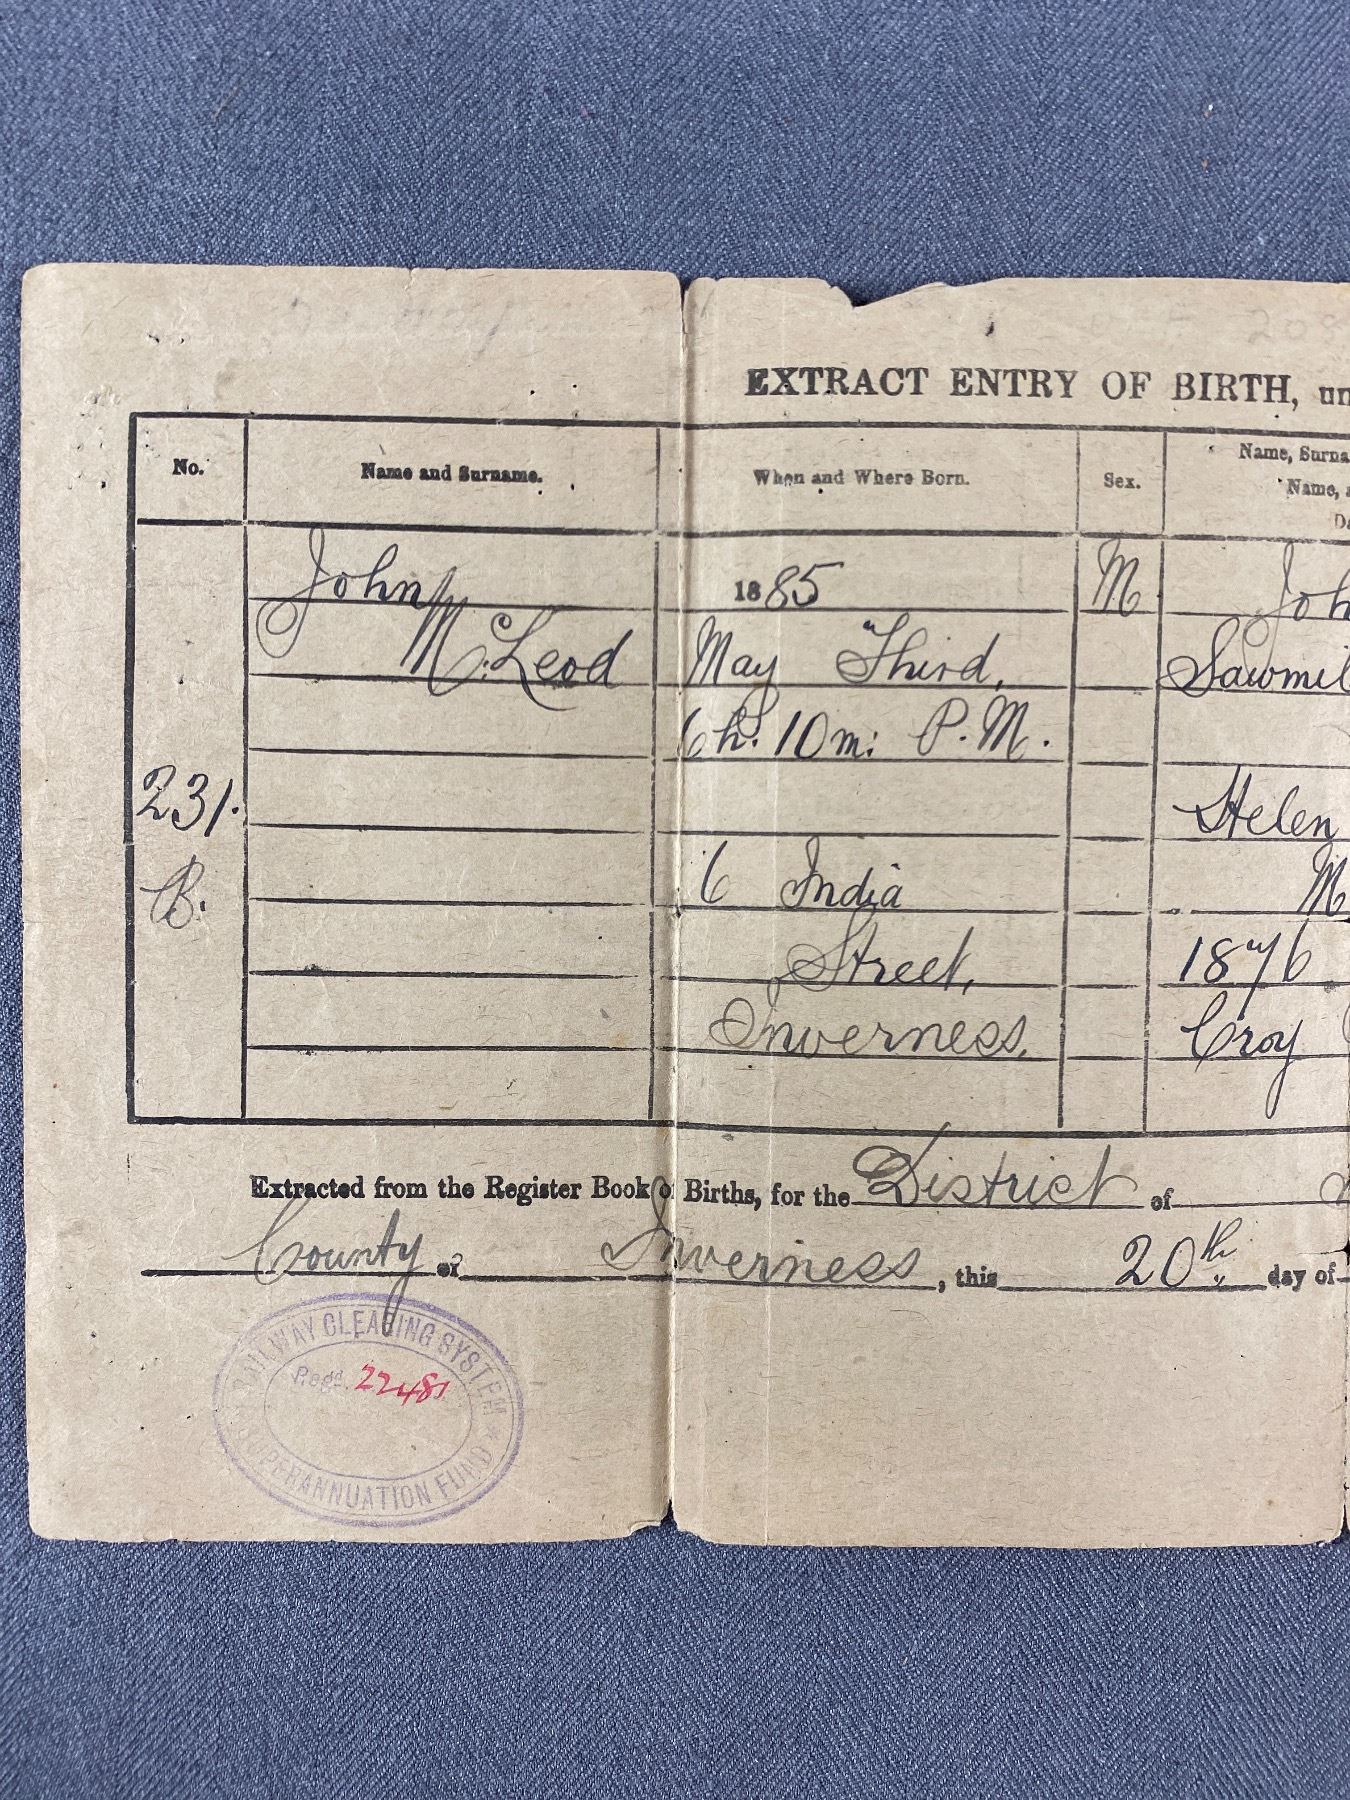 EXTRACT ENTRY OF BIRTH, un
No.
Name and Surname.
When and Where Born.
Sex.
Name, Surna
Name, a
Da
John
McLeod
1885
May Third,
6 h. 10 m: P.M.
6 India
Street,
Inverness.
M
Joh
Sawmil
Helen
M
1876
Croy
231.
B.
Extracted from the Register Book of Births, for the District of
County of Inverness, this 20th day of
RAILWAY CLEARING SYSTEM
Regd. 22481
SUPERANNUATION FUND